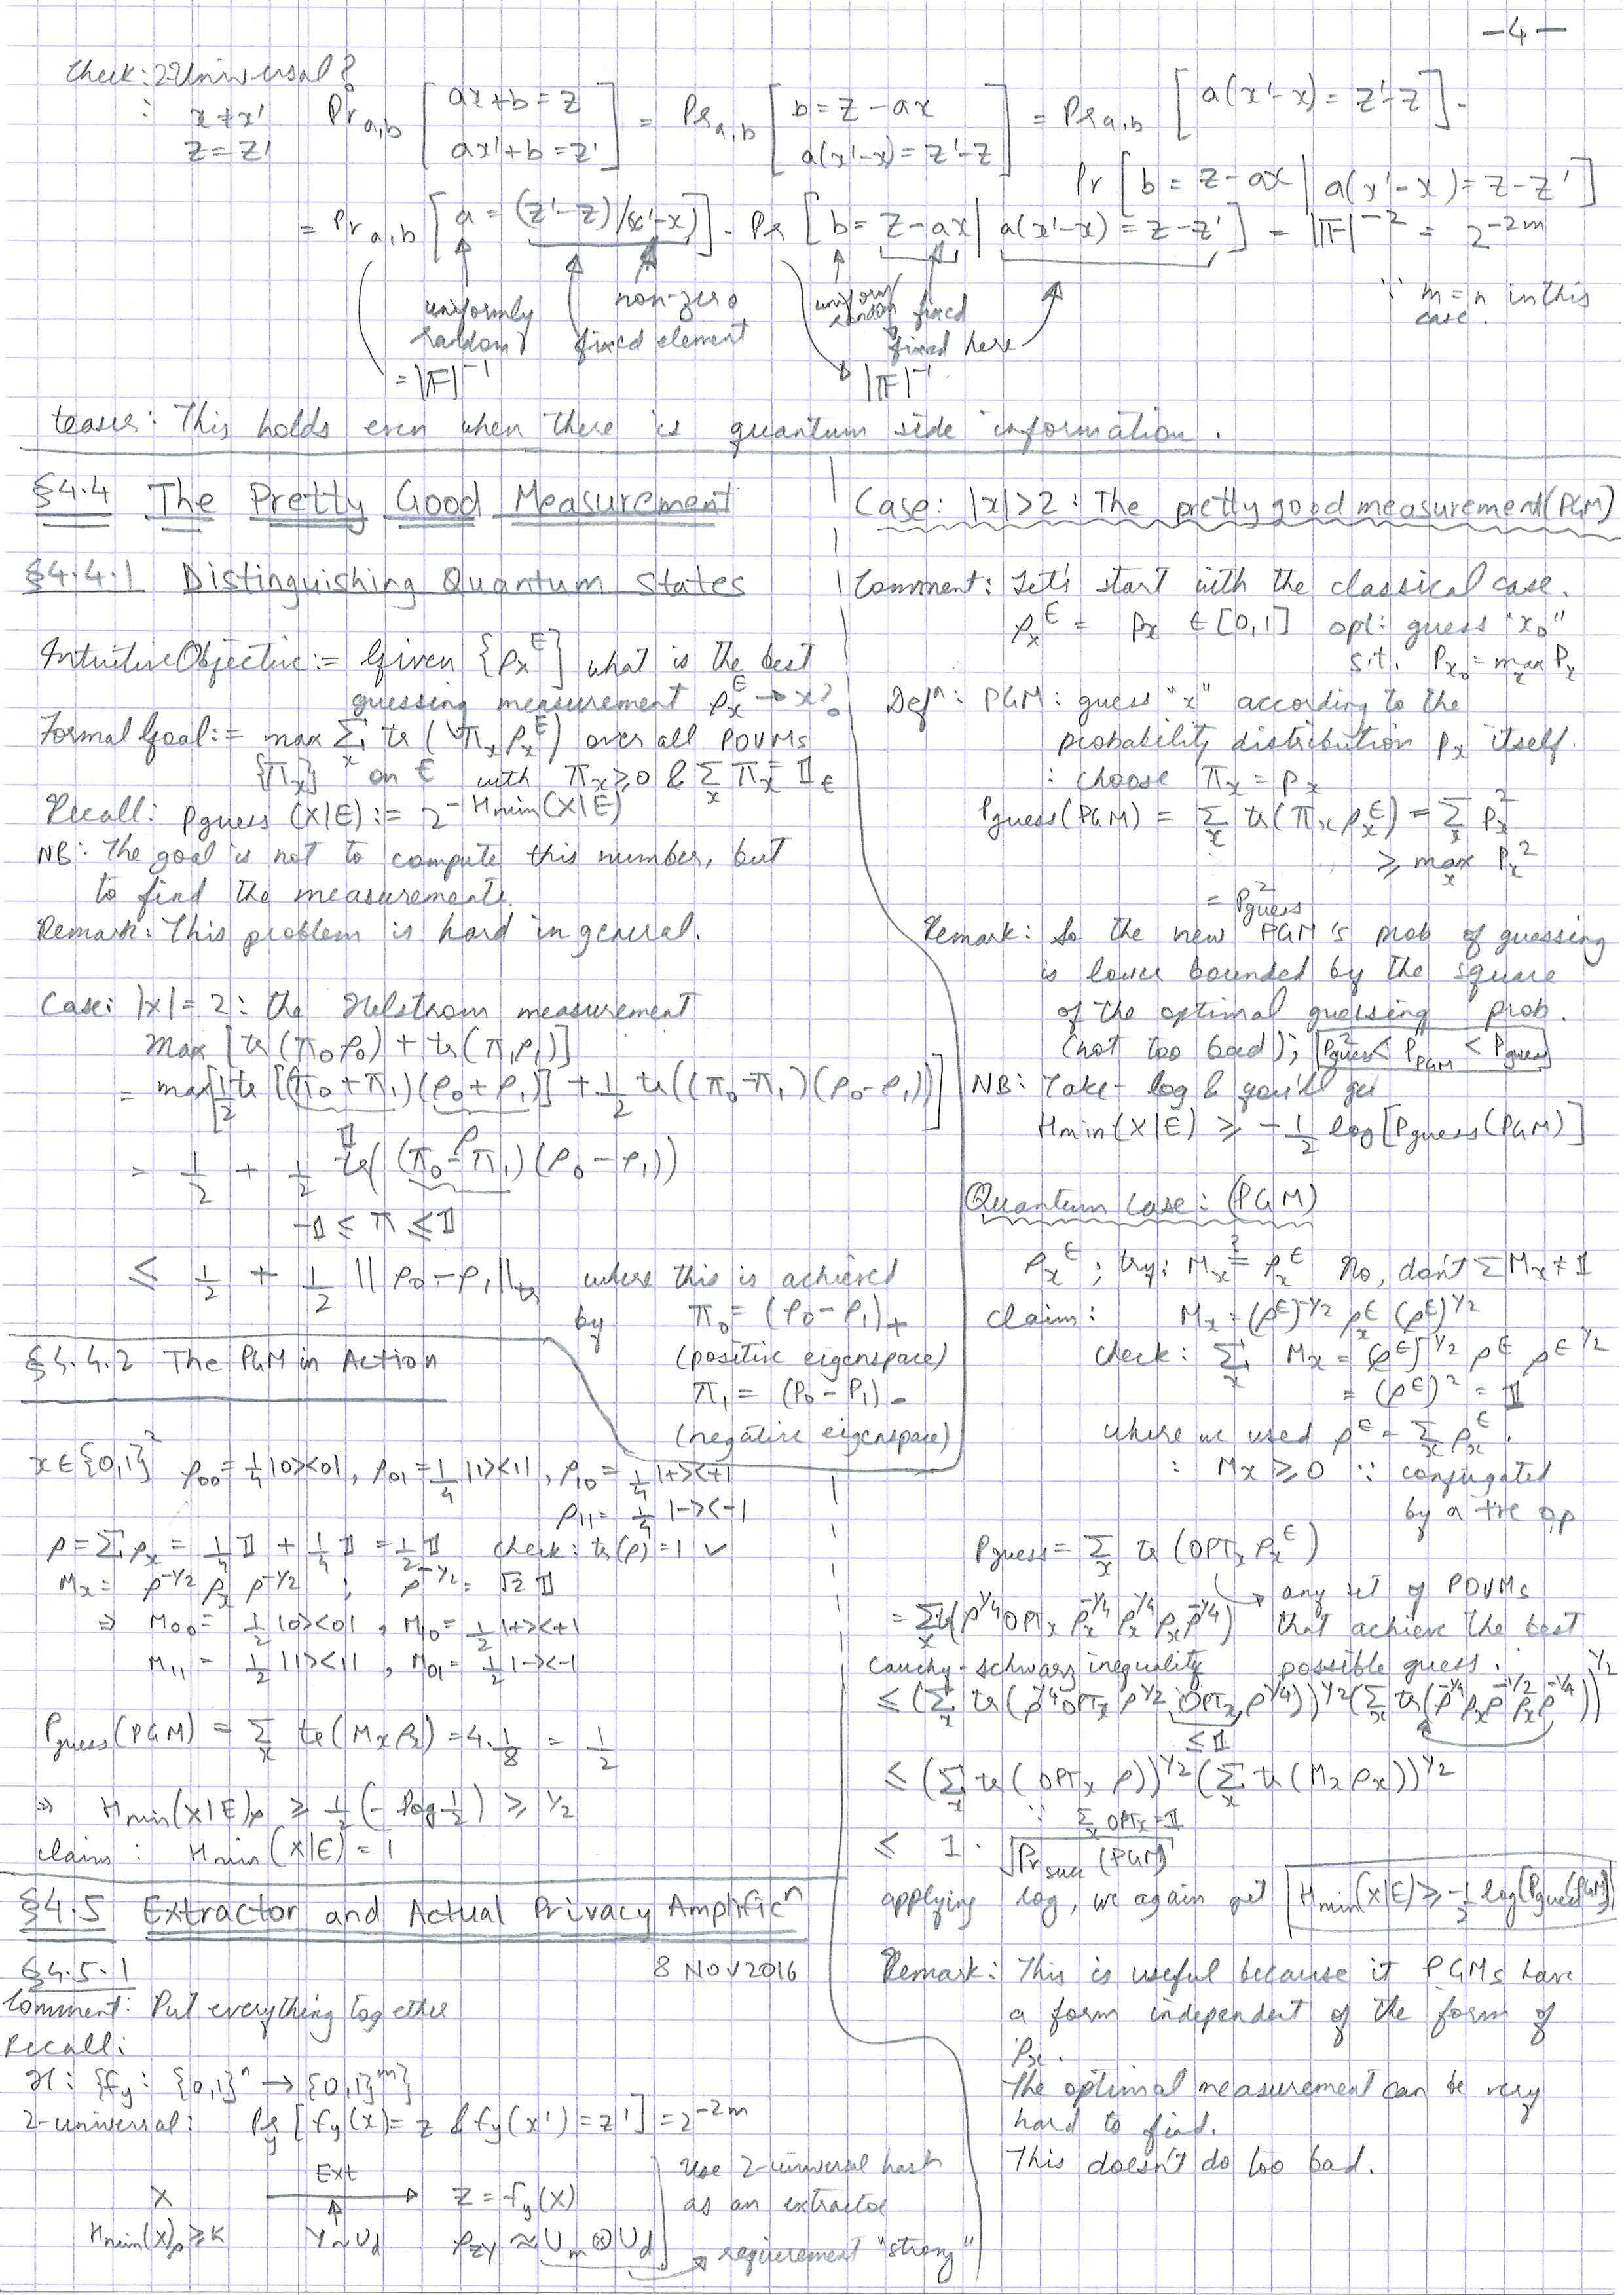 -4-
Check: 2-Universal?
∵ x ≠ x' Pr_{a,b} [ax+b = z, ax'+b = z'] = Pr_{a,b} [b = z - ax, a(x'-x) = z'-z] = Pr_{a,b} [a(x'-x) = z'-z] ·
z = z'
Pr [b = z - ax | a(x'-x) = z - z']
= Pr_{a,b} [a = (z'-z)/(x'-x)] · Pr [b = z - ax | a(x'-x) = z - z'] = |𝔽|^{-2} = 2^{-2m}
∵ m = n in this case.
uniformly random
non-zero
fixed element
uniform random
fixed
fixed here
= |𝔽|^{-1}
|𝔽|^{-1}
teaser: This holds even when there is quantum side information.
§4.4 The Pretty Good Measurement
§4.4.1 Distinguishing Quantum States
Intuitive Objective := Given {ρ_x^E} what is the best
guessing measurement ρ_x^E → x?
Formal Goal := max Σ_x tr (π_x ρ_x^E) over all POVMs
{π_x} on E with π_x ≥ 0 & Σ_x π_x = 𝟙_E
Recall: Pguess (X|E) := 2^{-Hmin(X|E)}
NB: The goal is not to compute this number, but
to find the measurements.
Remark: This problem is hard in general.
Case: |x| = 2: the Helstrom measurement
max [tr(π_0 ρ_0) + tr(π_1 ρ_1)]
= max [1/2 tr [(π_0 + π_1)(ρ_0 + ρ_1)] + 1/2 tr((π_0 - π_1)(ρ_0 - ρ_1))]
𝟙 ρ
= 1/2 + 1/2 tr((π_0 - π_1)(ρ_0 - ρ_1))
-𝟙 ≤ π ≤ 𝟙
≤ 1/2 + 1/2 ||ρ_0 - ρ_1||_tr where this is achieved
by π_0 = (ρ_0 - ρ_1)_+
(positive eigenspace)
π_1 = (ρ_0 - ρ_1)_-
(negative eigenspace)
§4.4.2 The PGM in Action
x ∈ {0,1}^2 ρ_00 = 1/4 |0><0|, ρ_01 = 1/4 |1><1|, ρ_10 = 1/4 |+><+|
ρ_11 = 1/4 |-><-|
ρ = Σ ρ_x = 1/4 𝟙 + 1/4 𝟙 = 1/2 𝟙 check: tr(ρ) = 1 ✓
M_x = ρ^{-1/2} ρ_x ρ^{-1/2} ; ρ^{-1/2} = √2 𝟙
⇒ M_00 = 1/2 |0><0|, M_10 = 1/2 |+><+|
M_11 = 1/2 |1><1|, M_01 = 1/2 |-><-|
Pguess(PGM) = Σ_x tr(M_x ρ_x) = 4·1/8 = 1/2
⇒ Hmin(X|E)_ρ ≥ 1/2 (-log 1/2) ≥ 1/2
claim: Hmin(X|E) = 1
§4.5 Extractor and Actual Privacy Amplific^n
§4.5.1 8 NOV 2016
Comment: Put everything together
Recall:
ℋ: {f_y: {0,1}^n → {0,1}^m}
2-universal: Pr_y [f_y(x) = z & f_y(x') = z'] = 2^{-2m}
X Ext → Z = f_y(X)
Hmin(X)_ρ ≥ k Y ~ U_d ρ_ZY ≈ U_m ⊗ U_d
Use 2-universal hash
as an extractor
requirement "strong"
Case: |x| > 2: The pretty good measurement (PGM)
Comment: Let's start with the classical case.
ρ_x^E = p_x ∈ [0,1] opt: guess "x_0"
s.t. P_{x_0} = max_x P_x
Def^n: PGM: guess "x" according to the
probability distribution p_x itself.
: choose π_x = p_x
Pguess(PGM) = Σ_x tr(π_x ρ_x^E) = Σ_x p_x^2
≥ max_x P_x^2
= P^2_guess
Remark: So the new PGM's prob of guessing
is lower bounded by the square
of the optimal guessing prob.
(not too bad); P^2_guess < P_PGM < Pguess
NB: Take -log & you'll get
Hmin(X|E) ≥ -1/2 log [Pguess(PGM)]
Quantum Case: (PGM)
ρ_x^E ; try: M_x ?= ρ_x^E No, don't ΣM_x ≠ 𝟙
claim: M_x = (ρ^E)^{-1/2} ρ_x^E (ρ^E)^{1/2}
check: Σ_x M_x = (ρ^E)^{-1/2} ρ^E ρ^{E 1/2}
= (ρ^E)^2 = 𝟙
where we used ρ^E = Σ_x ρ_x^E.
: M_x ≥ 0 ∵ conjugated
by a +ve op
Pguess = Σ_x tr (OPT_x ρ_x^E)
→ any set of POVMs
that achieve the best
possible guess.
= Σ_x tr(ρ^{1/4} OPT_x ρ_x^{1/4} ρ_x^{-1/4} ρ_x ρ^{-1/4})
Cauchy-Schwarz inequality
≤ (Σ_x tr (ρ^{1/4} OPT_x ρ^{1/2} OPT_x ρ^{1/4}))^{1/2} (Σ_x tr(ρ^{-1/4} ρ_x ρ^{-1/2} ρ_x ρ^{-1/4}))^{1/2}
≤ 𝟙
≤ (Σ_x tr (OPT_x ρ))^{1/2} (Σ_x tr (M_x ρ_x))^{1/2}
∵ Σ_x OPT_x = 𝟙
≤ 1 · √Pr_succ (PGM)
applying log, we again get Hmin(X|E) ≥ -1/2 log(Pguess(PGM))
Remark: This is useful because it PGMs have
a form independent of the form of
ρ_x.
The optimal measurement can be very
hard to find.
This doesn't do too bad.